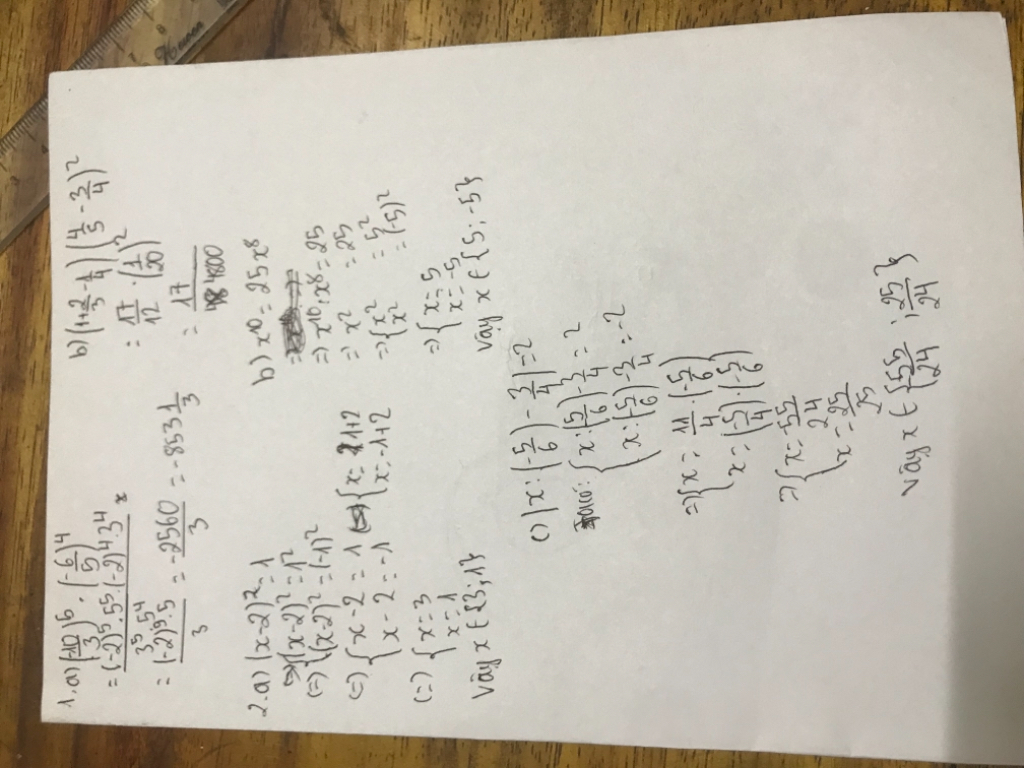 1.a) (-10/3)^5 . (-6/5)^4
= (-2)^5.5^5.(-2)^4.3^4 / 3^5 . 5^4
= (-2)^9.5 / 3 = -2560 / 3 = -853 1/3
b) (1+2/3-1/4)(4/5-3/4)^2
= 17/12 . (1/20)^2
= 17/4800
2.a) (x-2)^2=1
⇔ { (x-2)^2=1^2
(=) { (x-2)^2=(-1)^2
(=) { x-2=1 ⇔ { x=1+2
x-2=-1 x=-1+2
(=) { x=3
x=1
Vậy x ∈ {3;1}
b) x^10=25x^8
=> x^10:x^8=25
=> x^2 =25
=> { x^2 =5^2
x^2 =(-5)^2
=> { x=5
x=-5
Vậy x ∈ {5;-5}
c) |x:(-5/6)-3/4|=2
{ x:(5/6)-3/4=2
x:(5/6)-3/4=-2
=> { x=11/4.(-5/6)
x=(-5/4).(-5/6)
=> { x=-55/24
x=-25/25
Vậy x ∈ {55/24;25/24}